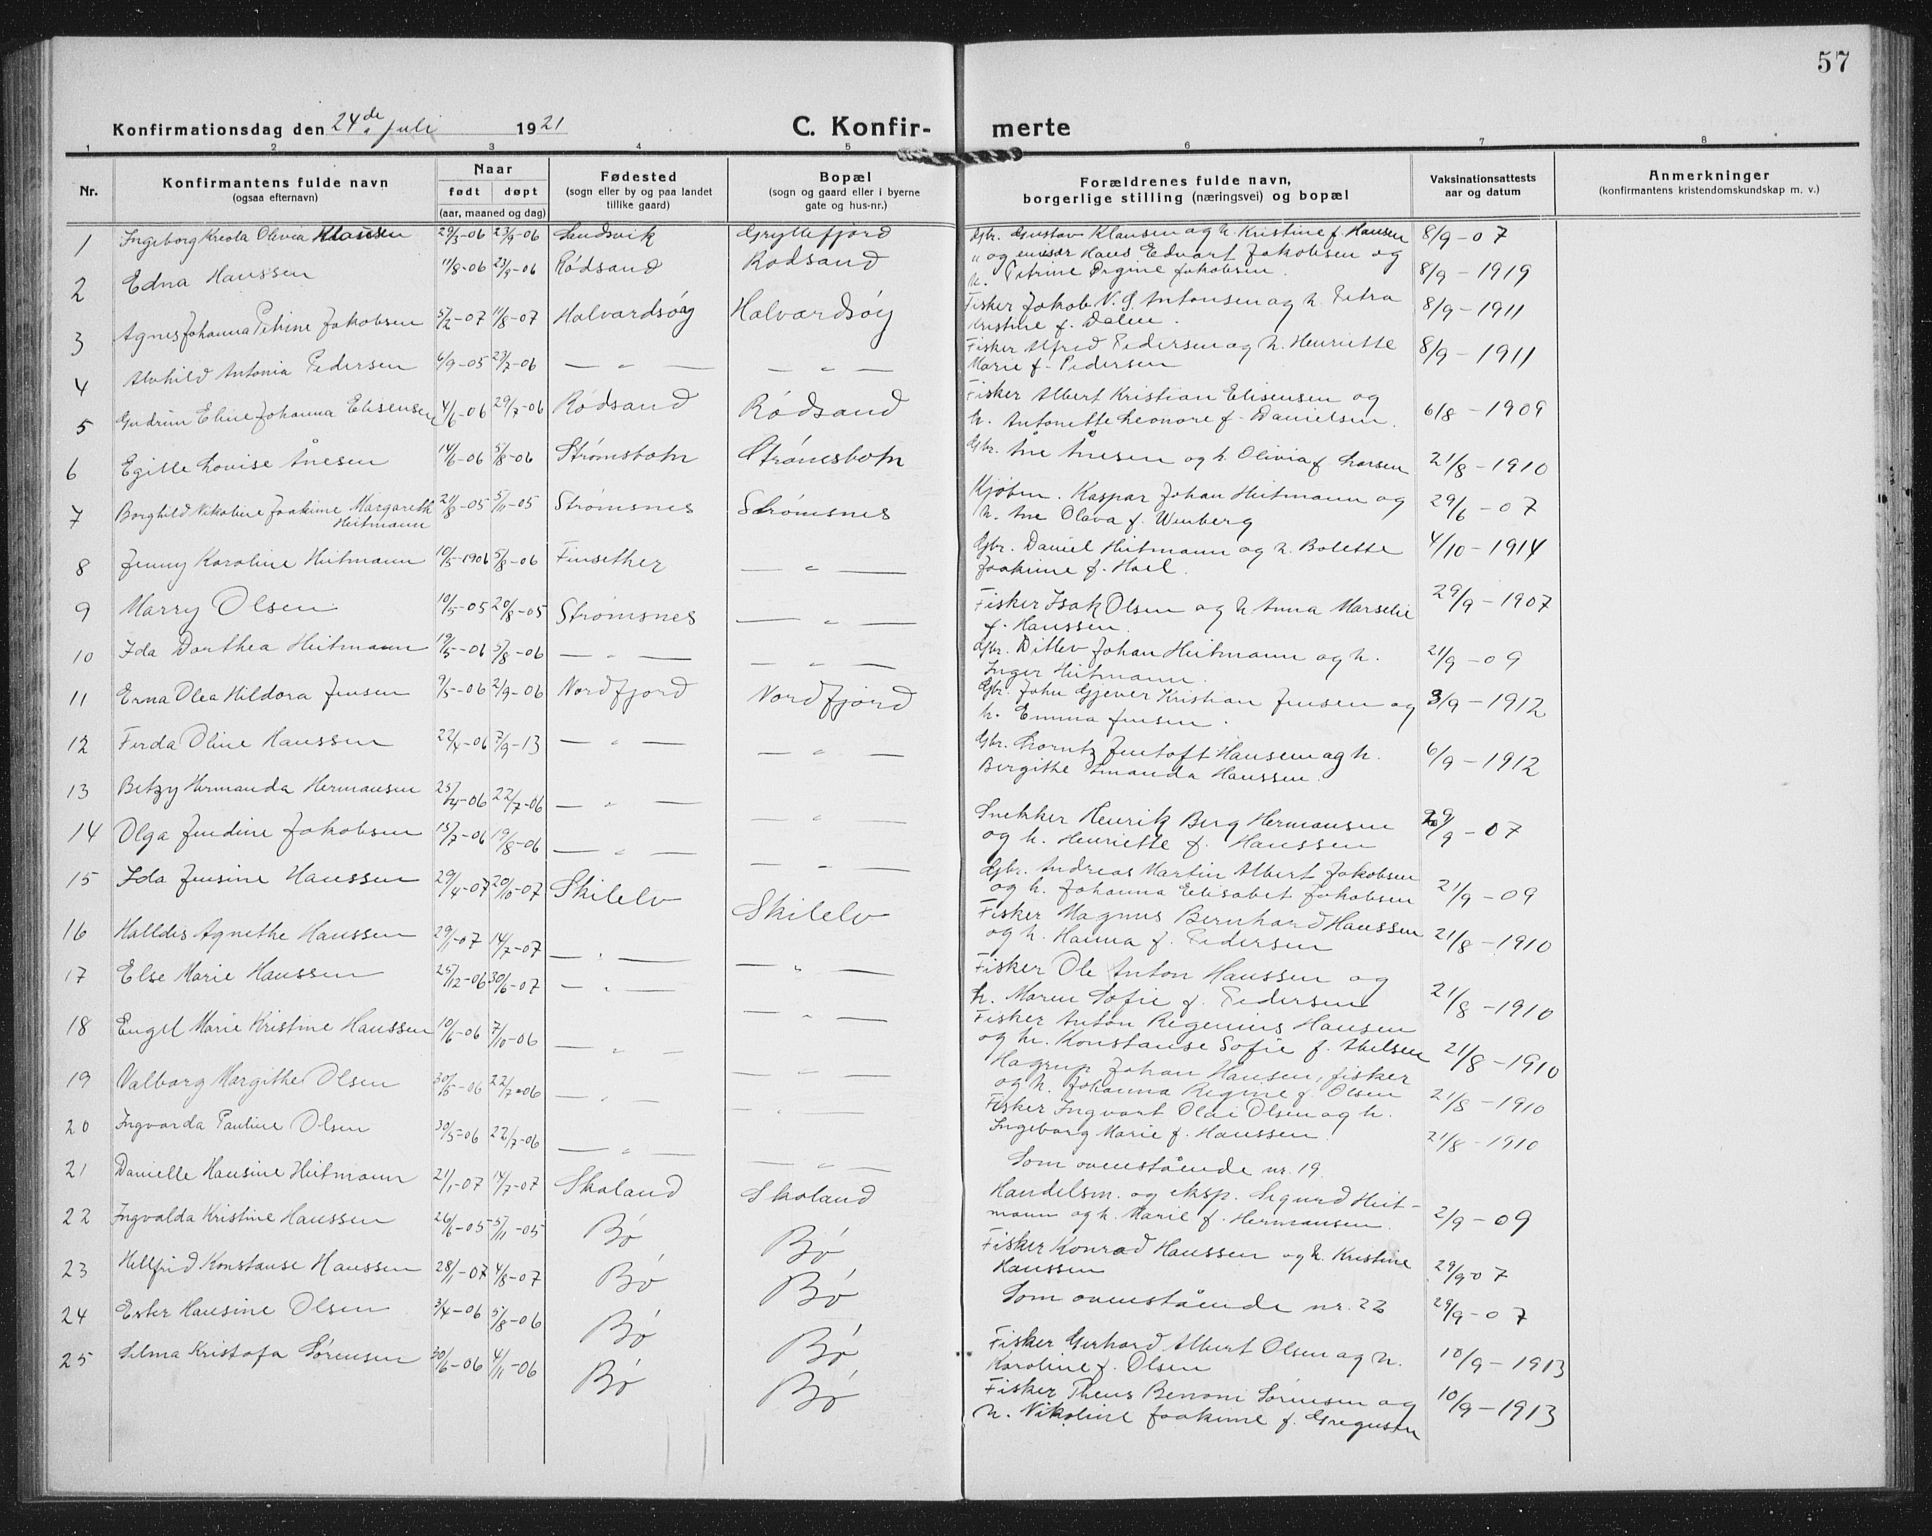 57
Konfirmationsdag den 24de Juli 1921
C. Konfir- merte
1 2 3 4 5 6 7 8
Nr. Konfirmantens fulde navn (ogsaa efternavn) Naar født døpt (aar, maaned og dag) Fødested (sogn eller by og paa landet tillike gaard) Bopæl (sogn og gaard eller i byerne gate og hus-nr.) Forældrenes fulde navn, borgerlige stilling (næringsvei) og bopæl Vaksinationsattests aar og datum Anmerkninger (konfirmantens kristendomskundskap m. v.)
1 Ingeborg Kreota Olivia Klausen 29/3-06 23/9-06 Sandsvik Gryllefjord Gbr. Gustav Klausen og h. Kristine f. Hansen 8/9-07
2 Edna Hanssen 11/8-06 23/9-06 Rødsand Rødsand " og emissær Hans Edvart Jakobsen og
h. Petrine Ovgine Jakobsen. 8/9-1919
3 Agnes Johanna Petrine Jakobsen 5/2-07 11/8-07 Halvardsøy Halvardsøy Fisker Jakob N. S. Antonsen og h. Petra
Kristine f. Dalen. 8/9-1911
4 Alvhild Antonia Pedersen 4/9-05 29/7-06 — " — — " — Fisker Alfred Pedersen og h. Henriette
Marie f. Pedersen 8/9-1911
5 Gudrun Eline Johanna Elisensen 4/6-06 29/7-06 Rødsand Rødsand Fisker Albert Kristian Elisensen og
h. Antonette Leonore f. Danielsen. 6/8-1909
6 Egille Lovise Ånesen 14/6-06 5/8-06 Strømsbotn Strømsbotn Gbr. Åne Ånesen og h. Olivia f. Larsen 21/8-1910
7 Borghild Nikoline Joakime Margareth
Heitmann 21/8-05 5/11-05 Strømsnes Strømsnes Kjøbm. Kaspar Johan Heitmann og
h. Ane Olava f. Wenberg 29/6-07
8 Jenny Karoline Heitmann 10/5-1906 5/8-06 Finsether — " — Gbr. Daniel Heitmann og h. Bolette
Joakime f. Hoel. 4/10-1914
9 Marry Olsen 10/5-05 20/8-05 Strømsnes — " — Fisker Isak Olsen og h. Anna Marselie
f. Hanssen. 29/9-1907
10 Ida Dorthea Heitmann 19/5-06 5/8-06 — " — — " — Gbr. Ditlev Johan Heitmann og h.
Inger Heitmann. 21/9-09
11 Erna Olea Hildora Jensen 9/5-06 2/9-06 Nordfjord Nordfjord Gbr. John Gjever Kristian Jensen og
h. Emma Jensen. 3/9-1912
12 Ferda Oline Hanssen 22/4-06 7/9-13 — " — — " — Gbr. Lorntz Jentoft Hansen og h.
Bergithe Amanda Hanssen. 6/9-1912
13 Betzy Hermanda Hermansen 25/4-06 22/7-06 — " — — " — Snekker Henrik Berg Hermansen
og h. Henriette f. Hanssen 29/9-07
14 Olga Jendine Jakobsen 15/7-06 19/8-06 — " — — " — Gbr. Andreas Martin Albert Jakobsen
og h. Johanna Elisabet Jakobsen 21/9-09
15 Ida Jensine Hanssen 29/4-07 20/10-07 Skilelv Skilelv Fisker Magnus Bernhard Hanssen
og h. Hanna f. Pedersen 21/8-1910
16 Halldis Agnethe Hanssen 29/1-07 14/7-07 — " — — " — Fisker Ole Anton Hanssen og
h. Maren Sofie f. Pedersen 21/8-1910
17 Else Marie Hanssen 25/12-06 30/6-07 — " — — " — Fisker Anton Regenius Hansen
og h. Konstanse Sofie f. Abelsen 21/8-1910
18 Engel Marie Kristine Hanssen 10/6-06 7/10-06 — " — — " — Hagrup Johan Hansen, fisker
og h. Johanna Regine f. Olsen 21/8-1910
19 Valborg Margithe Olsen 30/5-06 22/7-06 — " — — " — Fisker Ingvart Olai Olsen og h.
Ingeborg Marie f. Hanssen. 21/8-1910
20 Ingvarda Pauline Olsen 30/5-06 22/7-06 — " — — " — Som ovenstående nr. 19.
21 Danielle Hansine Heitmann 21/1-07 14/7-07 Skaland Skaland Handelsm. og eksp. Sigurd Heit-
mann og h. Marie f. Hermansen. 2/9-09
22 Ingvalda Kristine Hanssen 26/6-05 5/11-05 Bø Bø Fisker Konrad Hanssen og h. Kristine
Hanssen 29/9-07
23 Hellfrid Konstanse Hanssen 28/1-07 4/8-07 Bø Bø Som ovenstående nr. 22 29/9-07
24 Ester Hansine Olsen 3/4-06 5/8-06 Bø Bø Fisker Gerhard Albert Olsen og h.
Karoline f. Olsen 10/9-1913
25 Selma Kristofa Sørensen 30/6-06 4/11-06 Bø Bø Fisker Theus Benoni Sørensen og
h. Nikoline Joakime f. Gregusen 10/9-1913